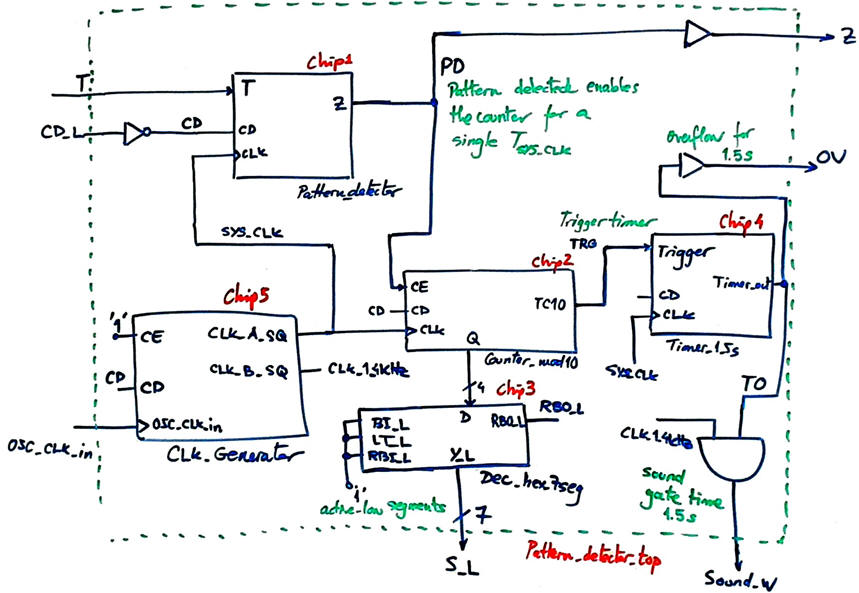 Chip1
T
T
Z
PD
Z
CD_L
CD
CD
CLK
Pattern_detector
Pattern detected enables
the counter for a
single TSYS_CLK
overflow for
1.5s
OV
SYS_CLK
Trigger timer
TRG
Chip4
Trigger
Timer_out
CD
CLK
Timer_1.5s
SYS_CLK
Chip2
CE
CD
CD
CLK
TC10
Q
Counter_mod10
Chip5
'1'
CE
CLK_A_SQ
CLK_B_SQ
CLK_1.4kHz
CD
CD
OSC_CLK_in
OSC_CLK_in
CLK_Generator
4
Chip3
BI_L
LT_L
RBI_L
D
RBO_L
RBO_L
Y_L
Dec_hex7seg
'1'
active-low segments
7
S_L
TO
CLK_1.4kHz
Sound
gate time
1.5s
Pattern_detector_top
Sound_W